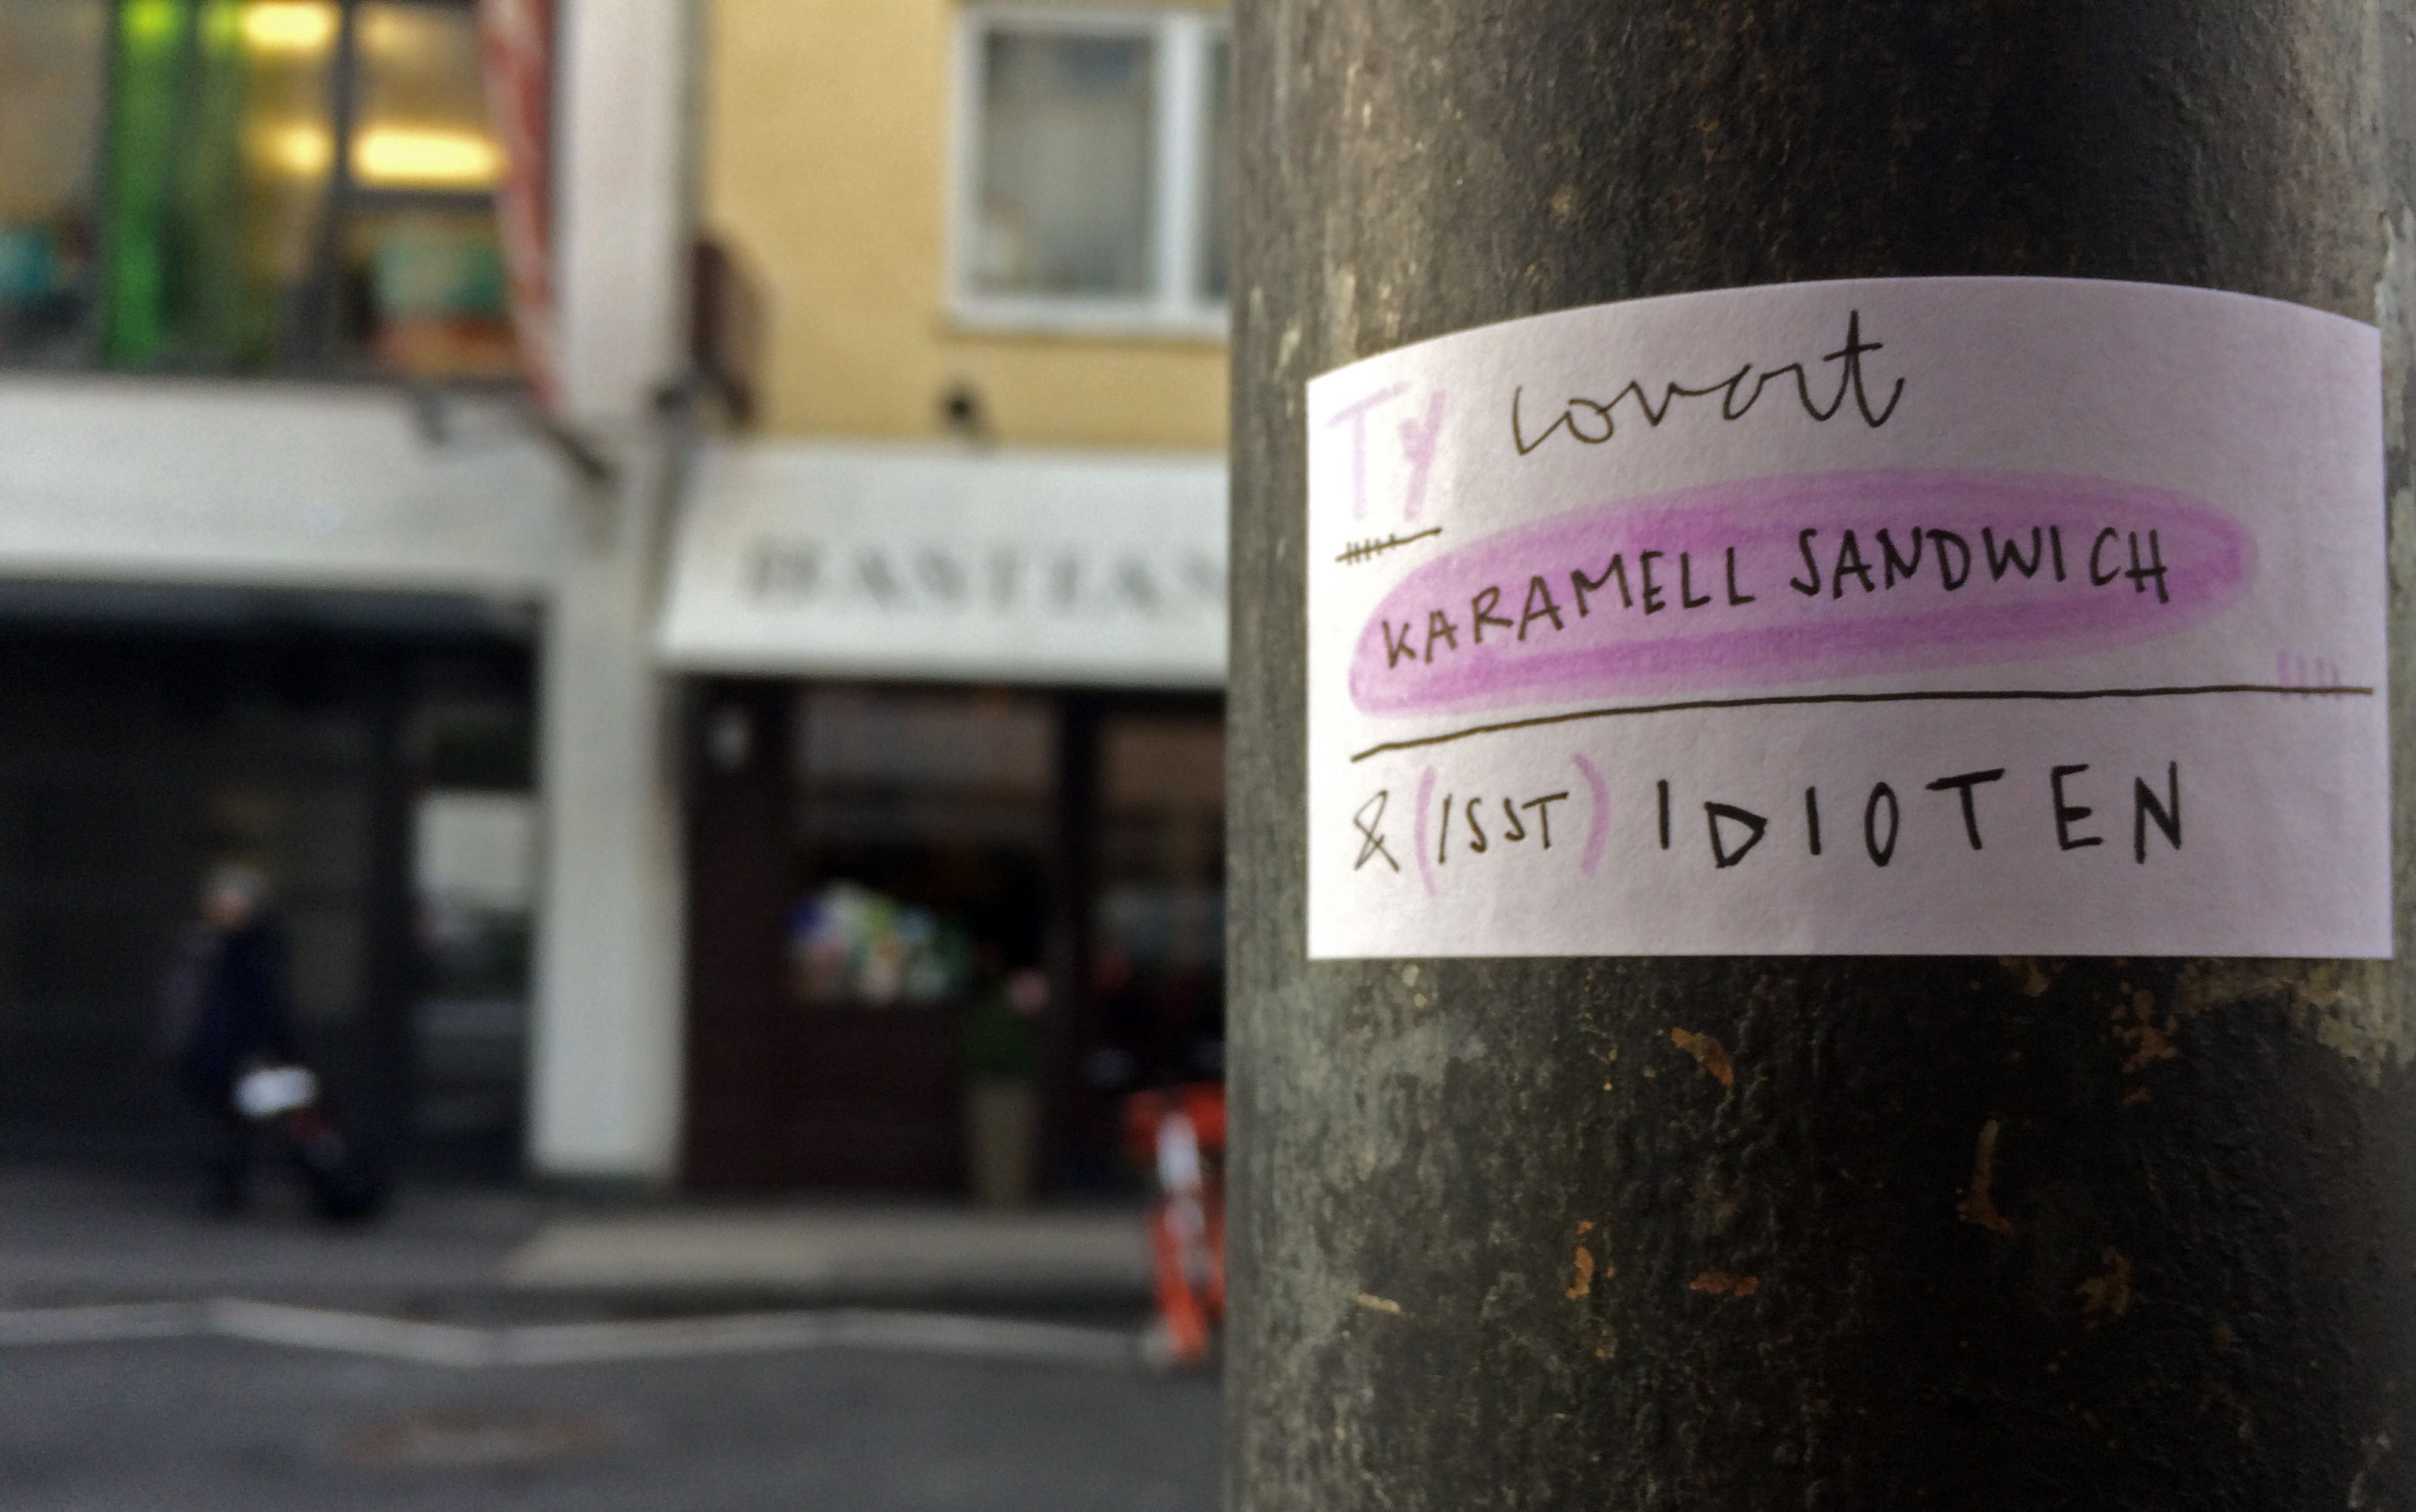 Ty
KARAMELL SANDWICH
& (ISST) IDIOTEN